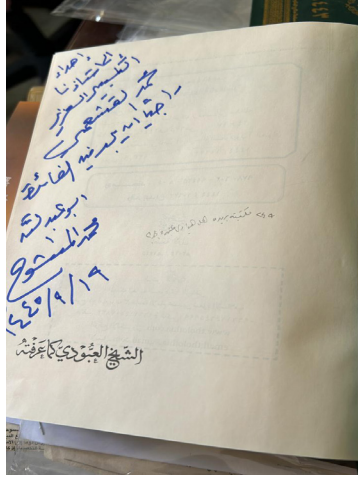 إهداء
لأستاذنا
النفيس العزيز
محمد القشعمي
راجيًا أن يجد فيه الفائدة
ابو عبد الله
محمد المشوح
١٤٤٥/٩/١٩
الشيخ العبودي كما عرفته